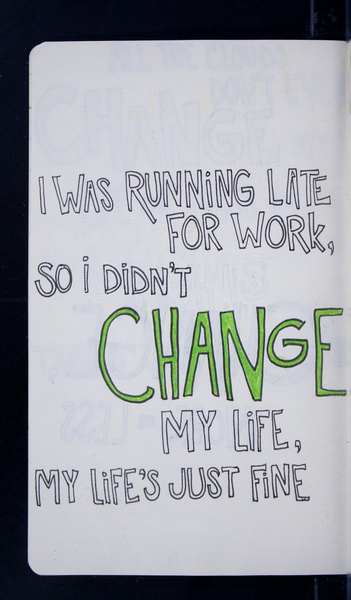 I WAS RUNNiNG LATE
FOR WORK,
SO i DiDN'T
CHANGE
MY LiFE,
MY LiFE'S JUST FiNE